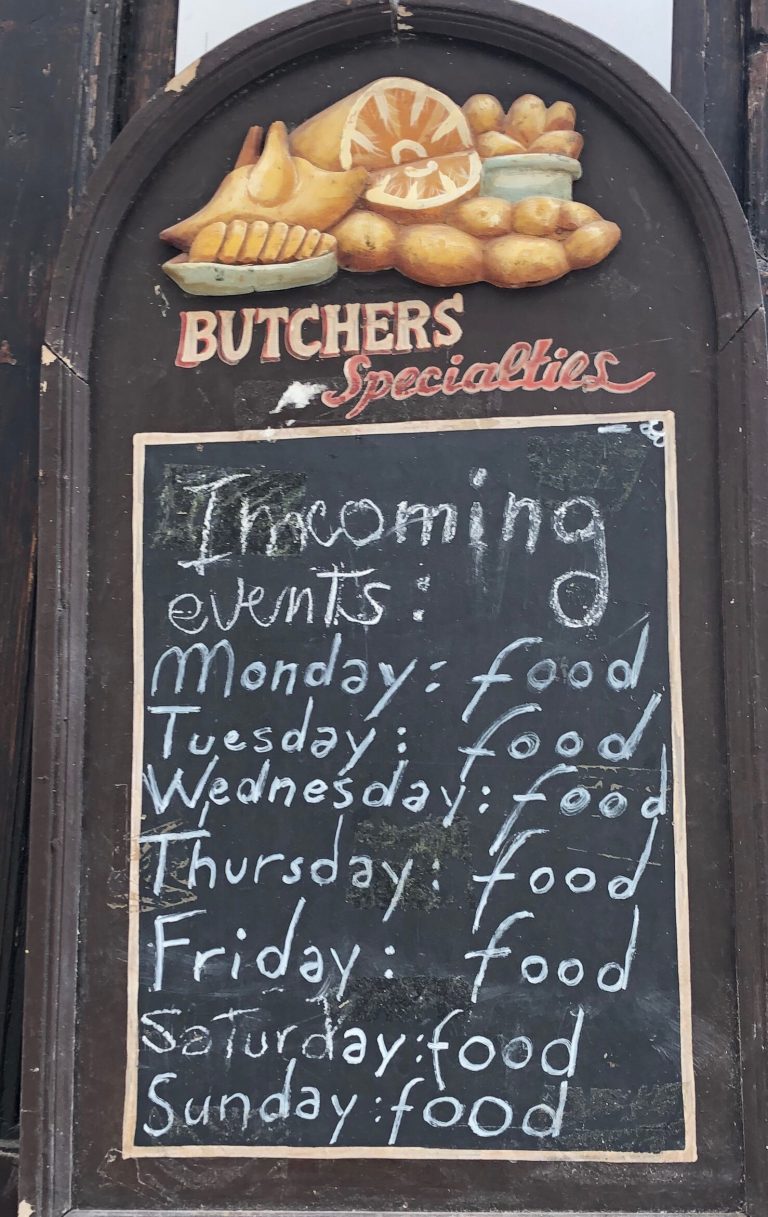 BUTCHERS
Specialties
Imcoming
events:
Monday: food
Tuesday: food
Wednesday: food
Thursday: food
Friday: food
Saturday: food
Sunday: food